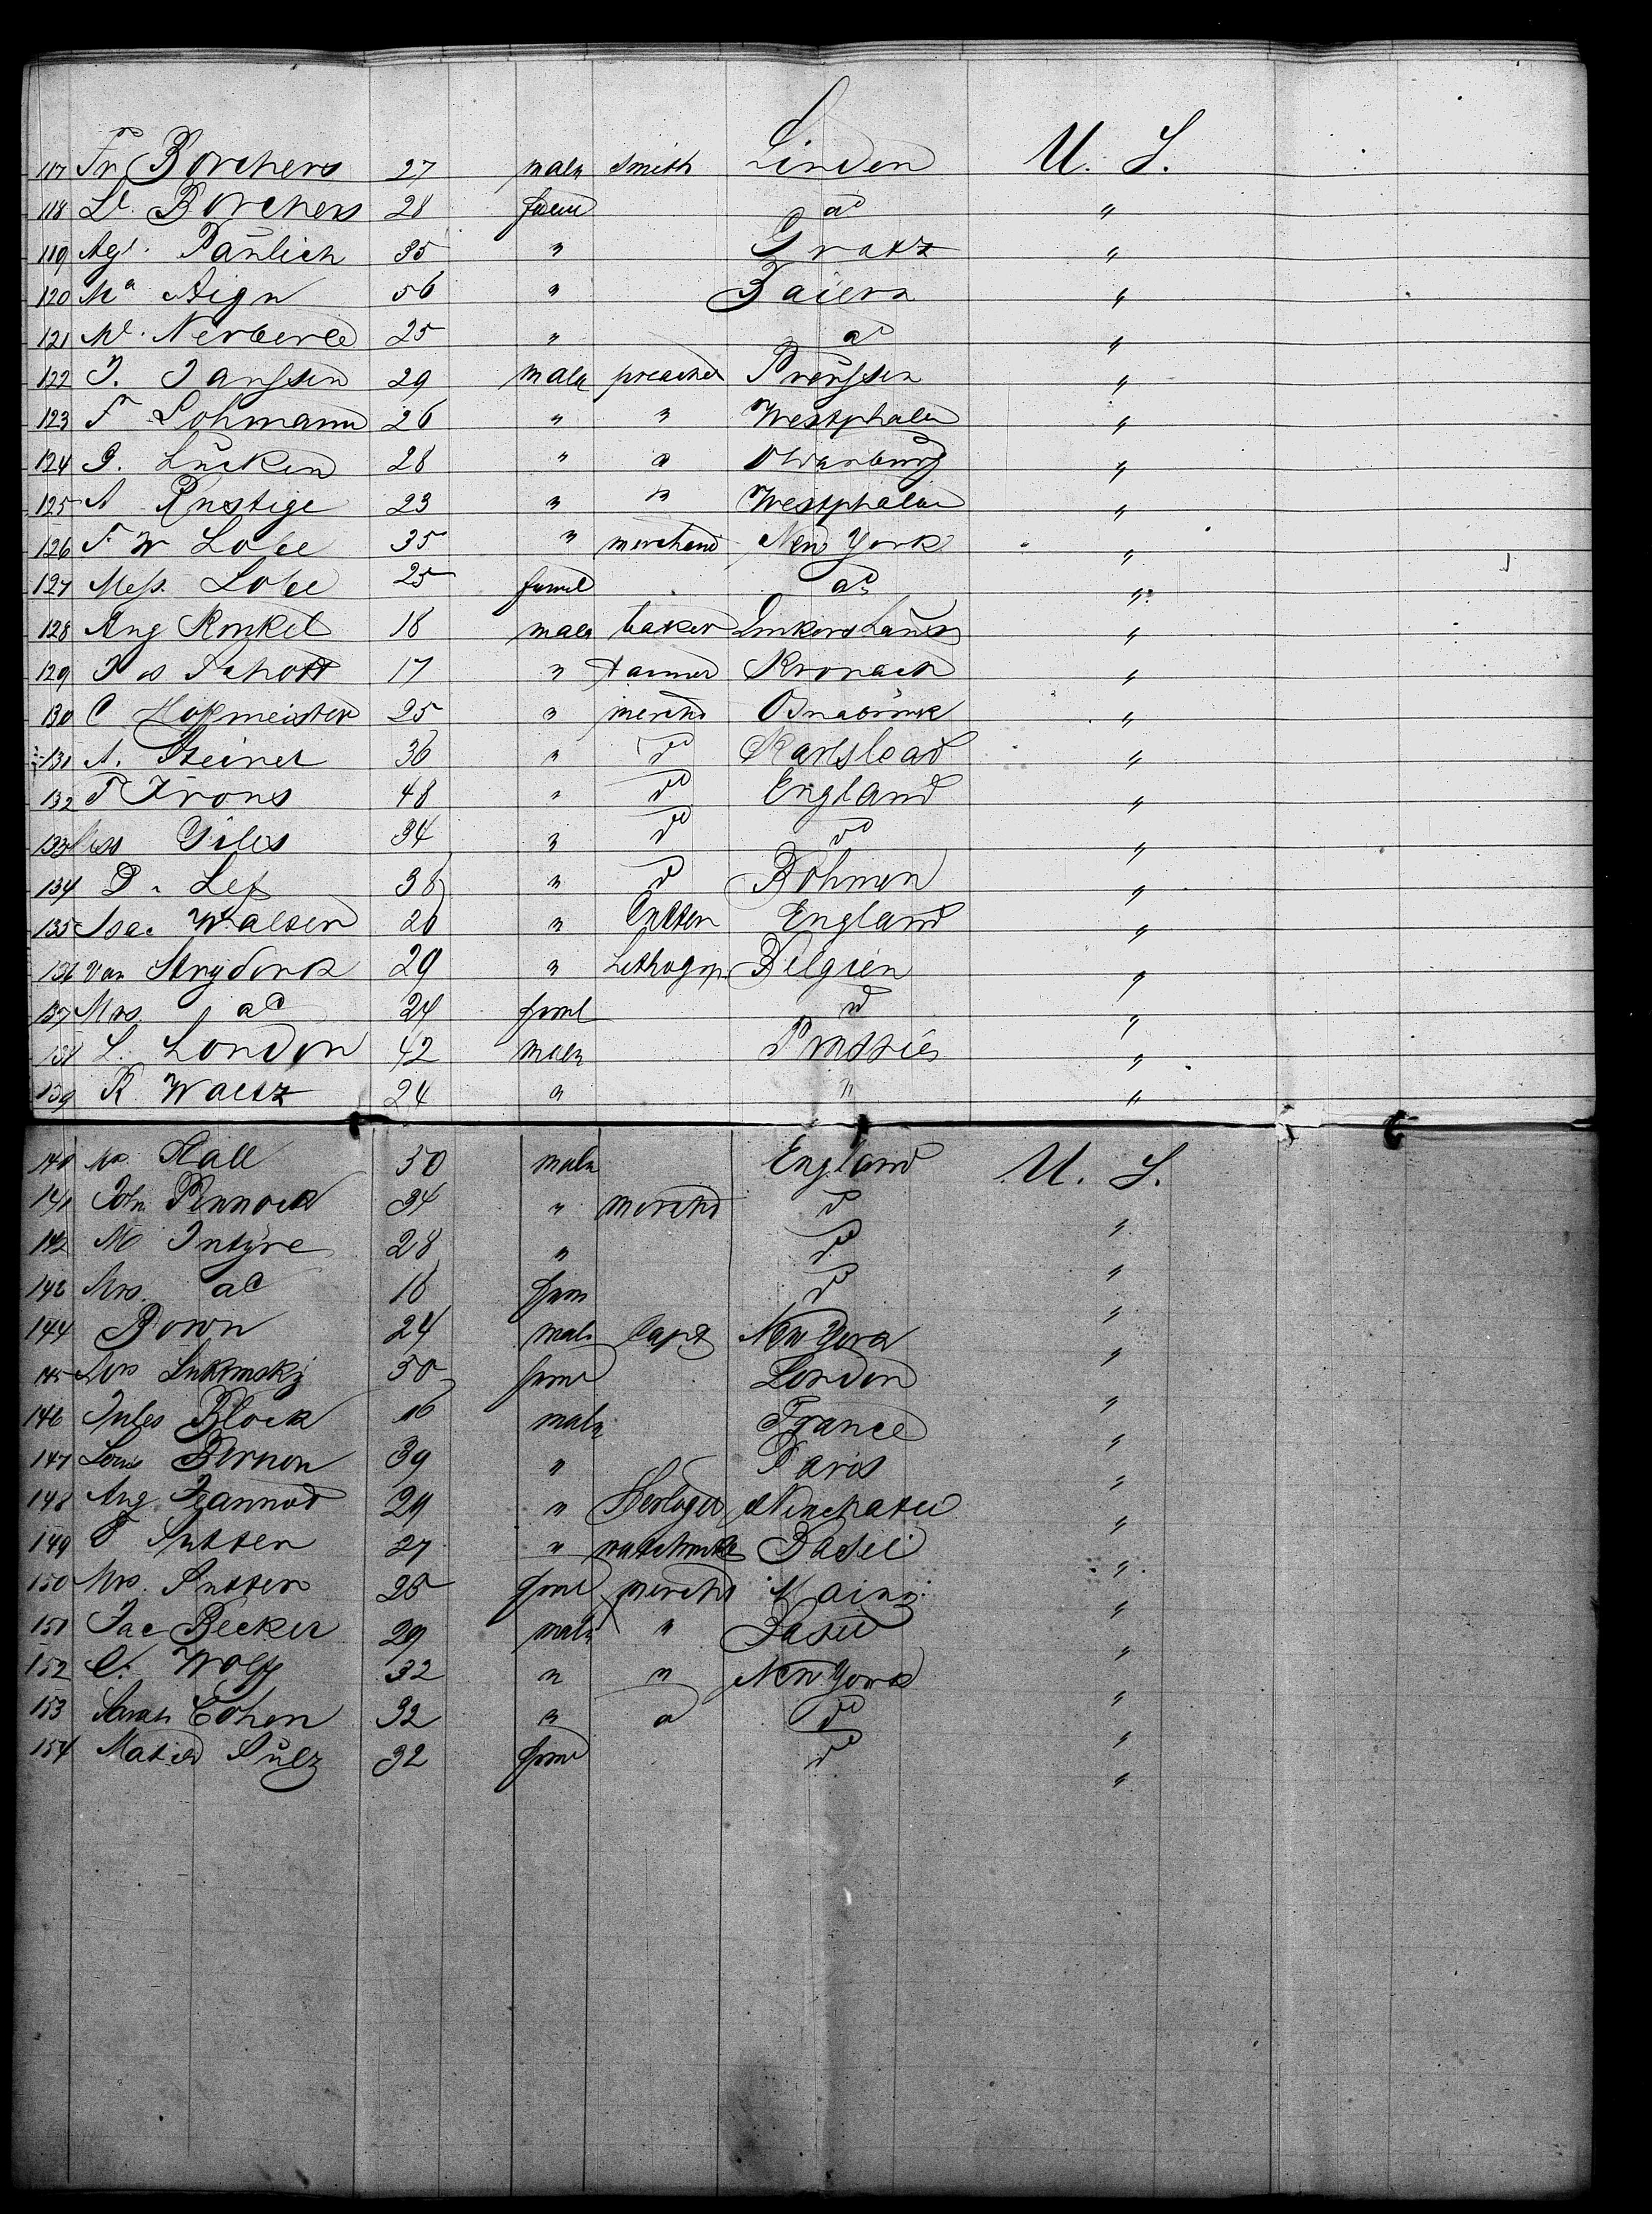 117 Fr Borchers 27 male Smith Linden U. S.
118 Ld. Borchers 28 fem do "
119 Agt. Paulich 35 " Gratz "
120 Ma Aign 56 " Baiern "
121 Ml. 25 " do "
122 J. Janssen 29 male preacher Preussen "
123 F Lohmann 26 " " Westphalen "
124 G. Lücken 28 " " Oldenburg "
125 A Rustige 23 " " Westphalen "
126 F W Lobe 35 " merchand New York "
127 Mess. Lobe 25 femel do "
128 Aug Kunkel 18 male baker "
129 Schott 17 " tanner Kronach "
130 C Hofmeister 25 " merchd Osnabrück "
131 A. Steiner 36 " do Karlsbad "
132 T Irons 48 " do England "
133 Giles 34 " do do "
134 D. 36 " do Böhmen "
135 Isac Walser 26 " England "
136 Van Strydonk 29 " Lithogr. Belgien "
137 Mrs. do 24 feml do "
138 L. London 42 male Prussia "
139 R Waltz 24 " " "
140 Mr. Hall 50 male England U. S.
141 John Pennock 34 " merchd do "
142 Mc Intyre 28 " do "
143 Mrs. do 18 fem do "
144 Bown 24 male Capt New York "
145 Mrs 50 feml London "
146 Jules Block 16 male France "
147 Louis Bernon 39 " Paris "
148 Aug Jeannod 29 " "
149 Sutter 27 " Basel "
150 Mrs. Sutter 25 feml merchd Mainz "
151 Jac Becker 29 male " Basel "
152 C. Wolff 32 " " New York "
153 Sarah Cohen 32 " " do "
154 Sülz 32 feml do "